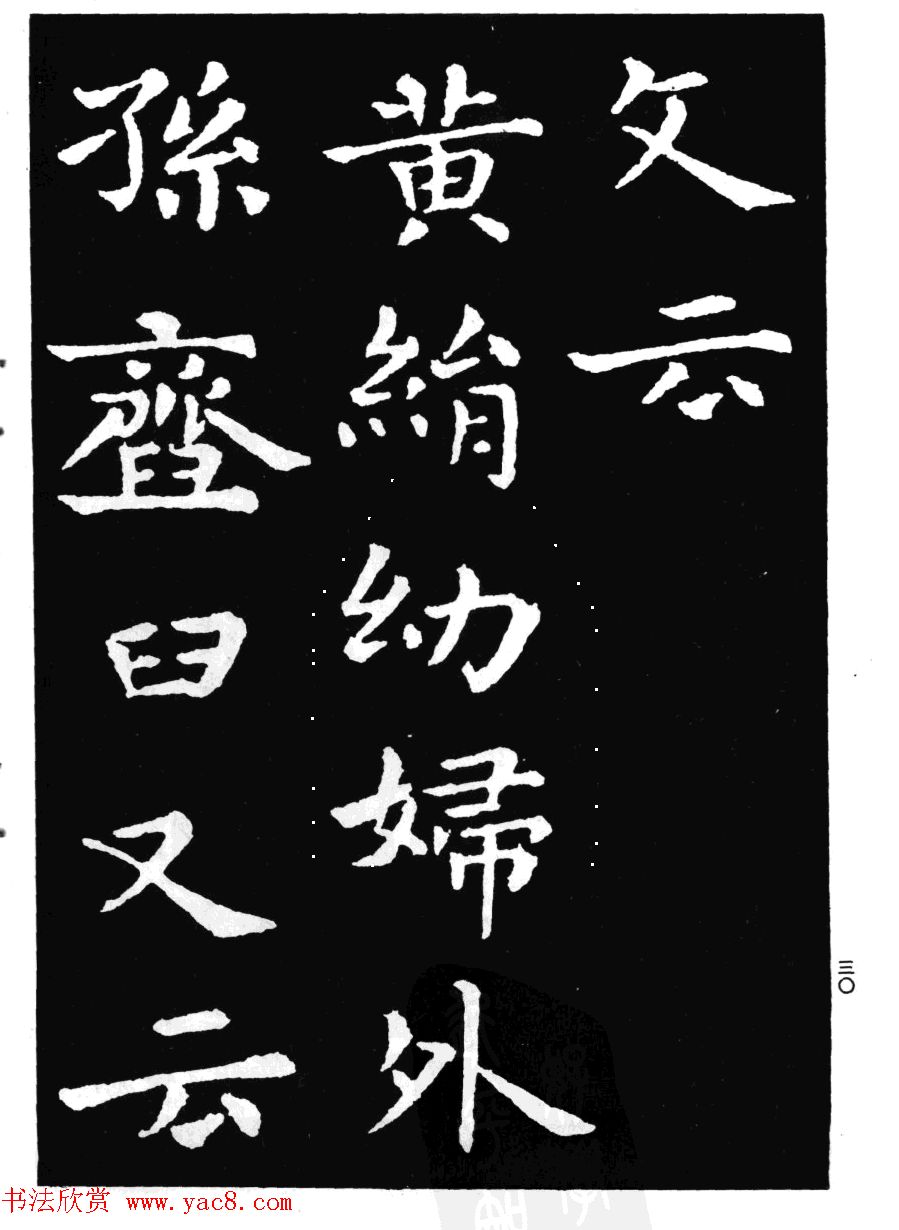 文云
黄絹幼婦外
孫齏臼又云
三〇
书法欣赏 www.yac8.com